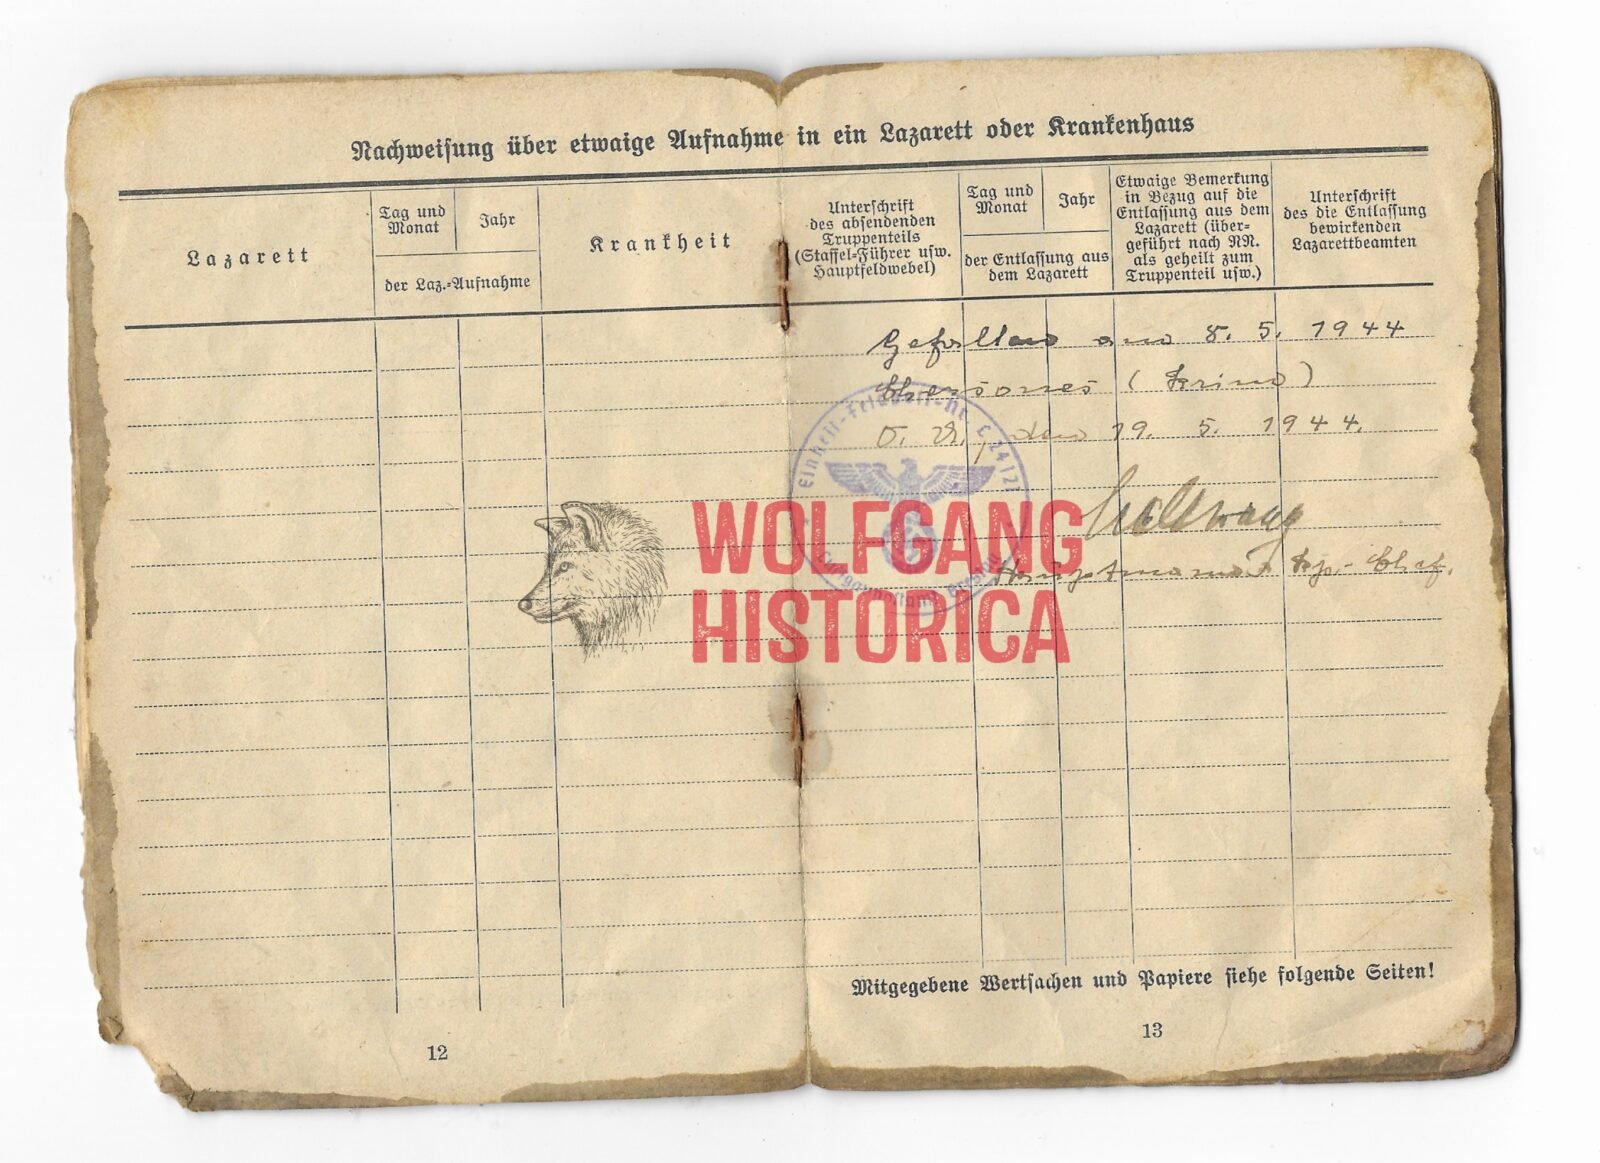 Nachweisung über etwaige Aufnahme in ein Lazarett oder Krankenhaus
Lazarett
Tag und
Monat
Jahr
der Laz.-Aufnahme
Krankheit
Unterschrift
des absendenden
Truppenteils
(Staffel-Führer usw.
Hauptfeldwebel)
Tag und
Monat
Jahr
der Entlassung aus
dem Lazarett
Etwaige Bemerkung
in Bezug auf die
Entlassung aus dem
Lazarett (über-
geführt nach NN.
als geheilt zum
Truppenteil usw.)
Unterschrift
des die Entlassung
bewirkenden
Lazarettbeamten
Gefallen am 8. 5. 1944
Chersones (Krim)
O. U., den 19. 5. 1944.
Hauptmann u. Kp.-Chef.
Einheit-Feldpost-Nr. L 24127
WOLFGANG
HISTORICA
Mitgegebene Wertsachen und Papiere siehe folgende Seiten!
12
13